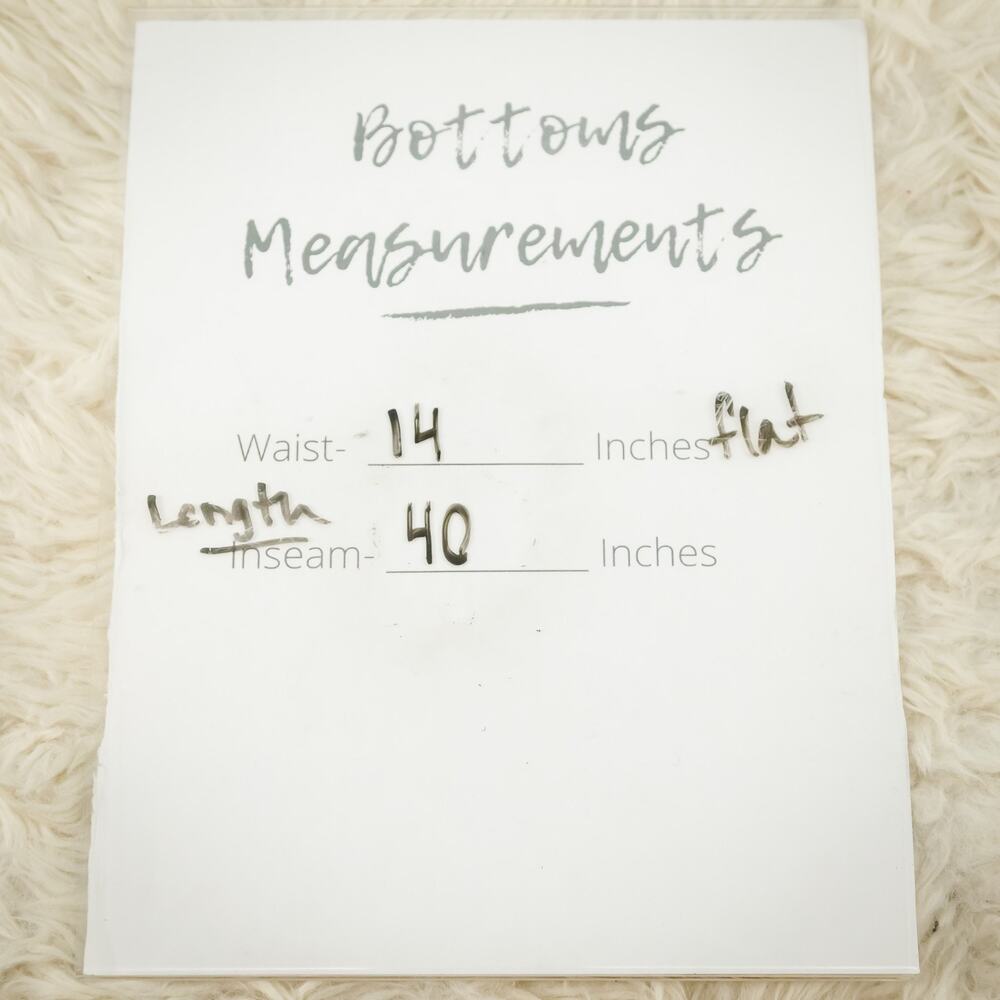 Bottoms
Measurements
Waist- 14 Inches flat
Length
Inseam- 40 Inches